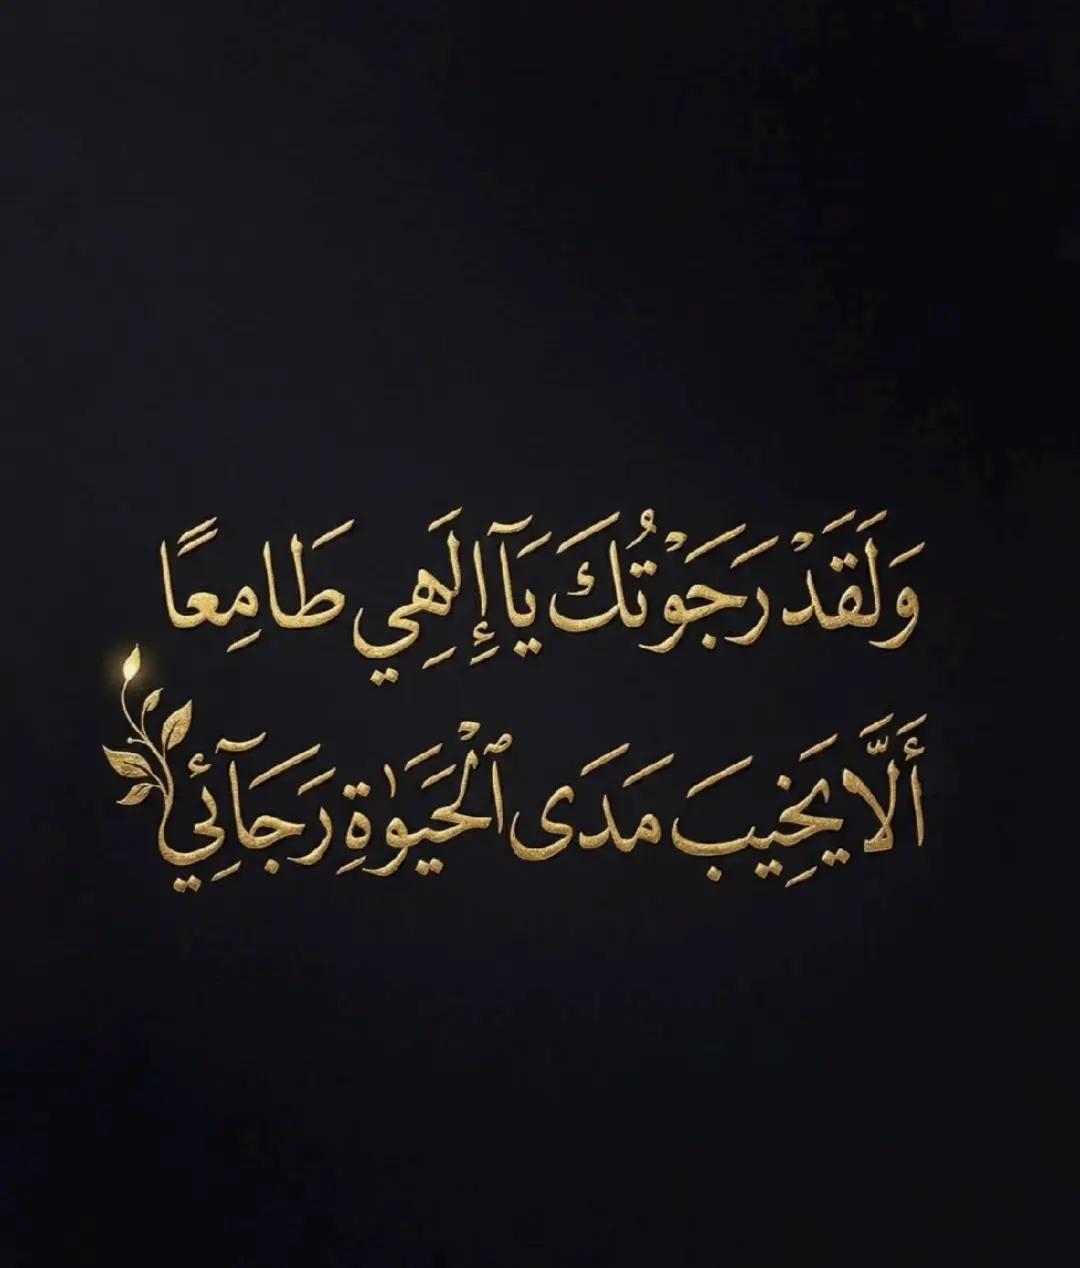 وَلَقَدْ رَجَوْتُكَ يَآ إِلَهِي طَامِعًا
أَلَّا يَخِيبَ مَدَى ٱلْحَيَوٰةِ رَجَآئِي